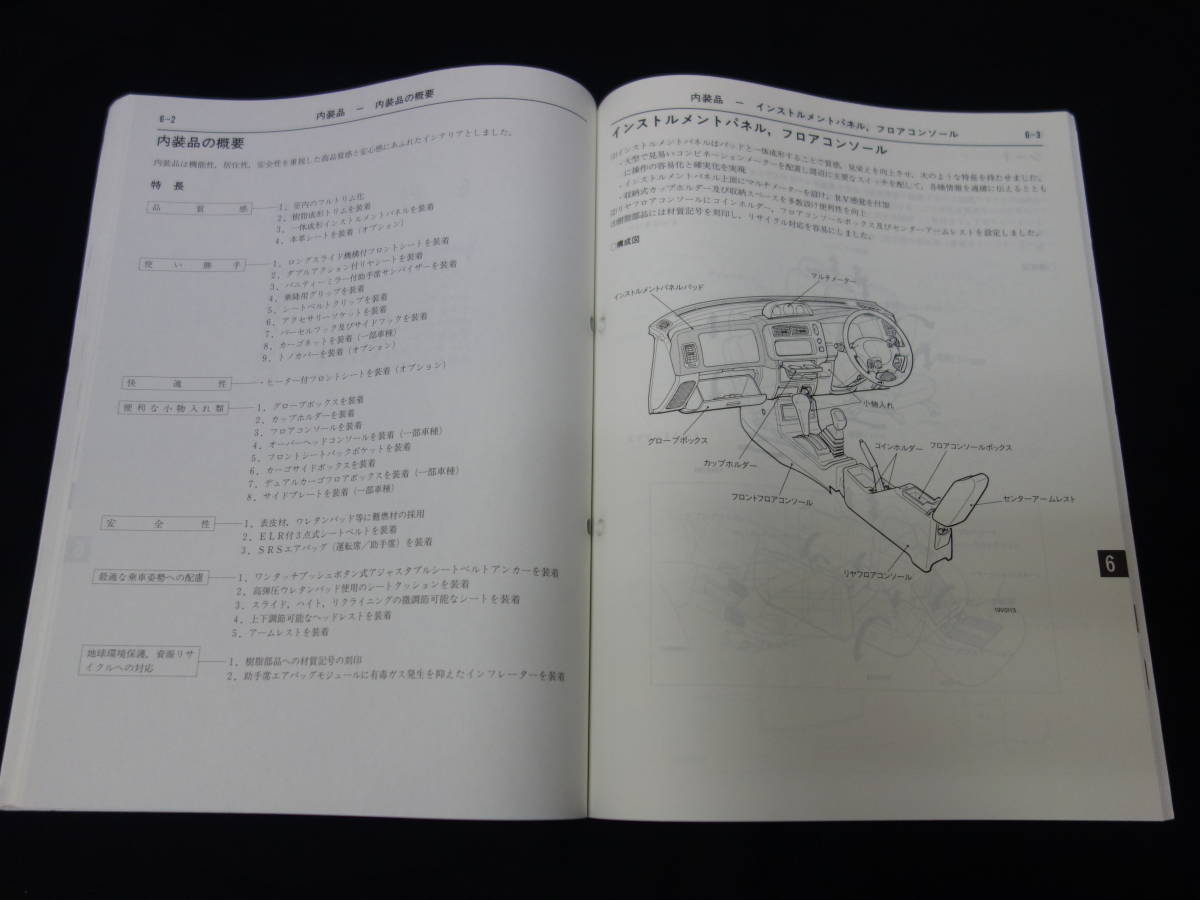 6-2
内装品 － 内装品の概要
内装品の概要
内装品は機能性，居住性，安全性を重視した高品質感と安心感にあふれたインテリアとしました。
特 長
品 質 感
1．室内のフルトリム化
2．樹脂成形トリムを装着
3．一体成形インストルメントパネルを装着
4．本革シートを装着（オプション）
使 い 勝 手
1．ロングスライド機構付フロントシートを装着
2．ダブルアクション付リヤシートを装着
3．バニティーミラー付助手席サンバイザーを装着
4．乗降用グリップを装着
5．シートベルトクリップを装着
6．アクセサリーソケットを装着
7．パーセルフック及びサイドフックを装着
8．カーゴネットを装着（一部車種）
9．トノカバーを装着（オプション）
快 適 性
・ヒーター付フロントシートを装着（オプション）
便利な小物入れ類
1．グローブボックスを装着
2．カップホルダーを装着
3．フロアコンソールを装着
4．オーバーヘッドコンソールを装着（一部車種）
5．フロントシートバックポケットを装着
6．カーゴサイドボックスを装着
7．デュアルカーゴフロアボックスを装着（一部車種）
8．サイドプレートを装着（一部車種）
安 全 性
1．表皮材，ウレタンパッド等に難燃材の採用
2．ELR付3点式シートベルトを装着
3．SRSエアバッグ（運転席／助手席）を装着
最適な乗車姿勢への配慮
1．ワンタッチプッシュボタン式アジャスタブルシートベルトアンカーを装着
2．高弾圧ウレタンパッド使用のシートクッションを装着
3．スライド，ハイト，リクライニングの微調節可能なシートを装着
4．上下調節可能なヘッドレストを装着
5．アームレストを装着
地球環境保護，資源リサ
イクルへの対応
1．樹脂部品への材質記号の刻印
2．助手席エアバッグモジュールに有毒ガス発生を抑えたインフレーターを装着
内装品 － インストルメントパネル，フロアコンソール
6-3
インストルメントパネル，フロアコンソール
(1)インストルメントパネルはパッドと一体成形することで質感，見栄えを向上させ，次のような特長を持たせました。
・大型で見易いコンビネーションメーターを配置し周辺に主要なスイッチを配して，各種情報を適確に伝えるととも
に操作の容易化と確実化を実現
・インストルメントパネル上面にマルチメーターを設け，RV感覚を付加
・収納式カップホルダー及び収納スペースを多数設け便利性を向上
(2)リヤフロアコンソールにコインホルダー，フロアコンソールボックス及びセンターアームレストを設定しました。
(3)樹脂部品には材質記号を刻印し，リサイクル対応を容易にしました。
○構成図
マルチメーター
インストルメントパネルパッド
小物入れ
グローブボックス
カップホルダー
コインホルダー
フロアコンソールボックス
フロントフロアコンソール
センターアームレスト
リヤフロアコンソール
6